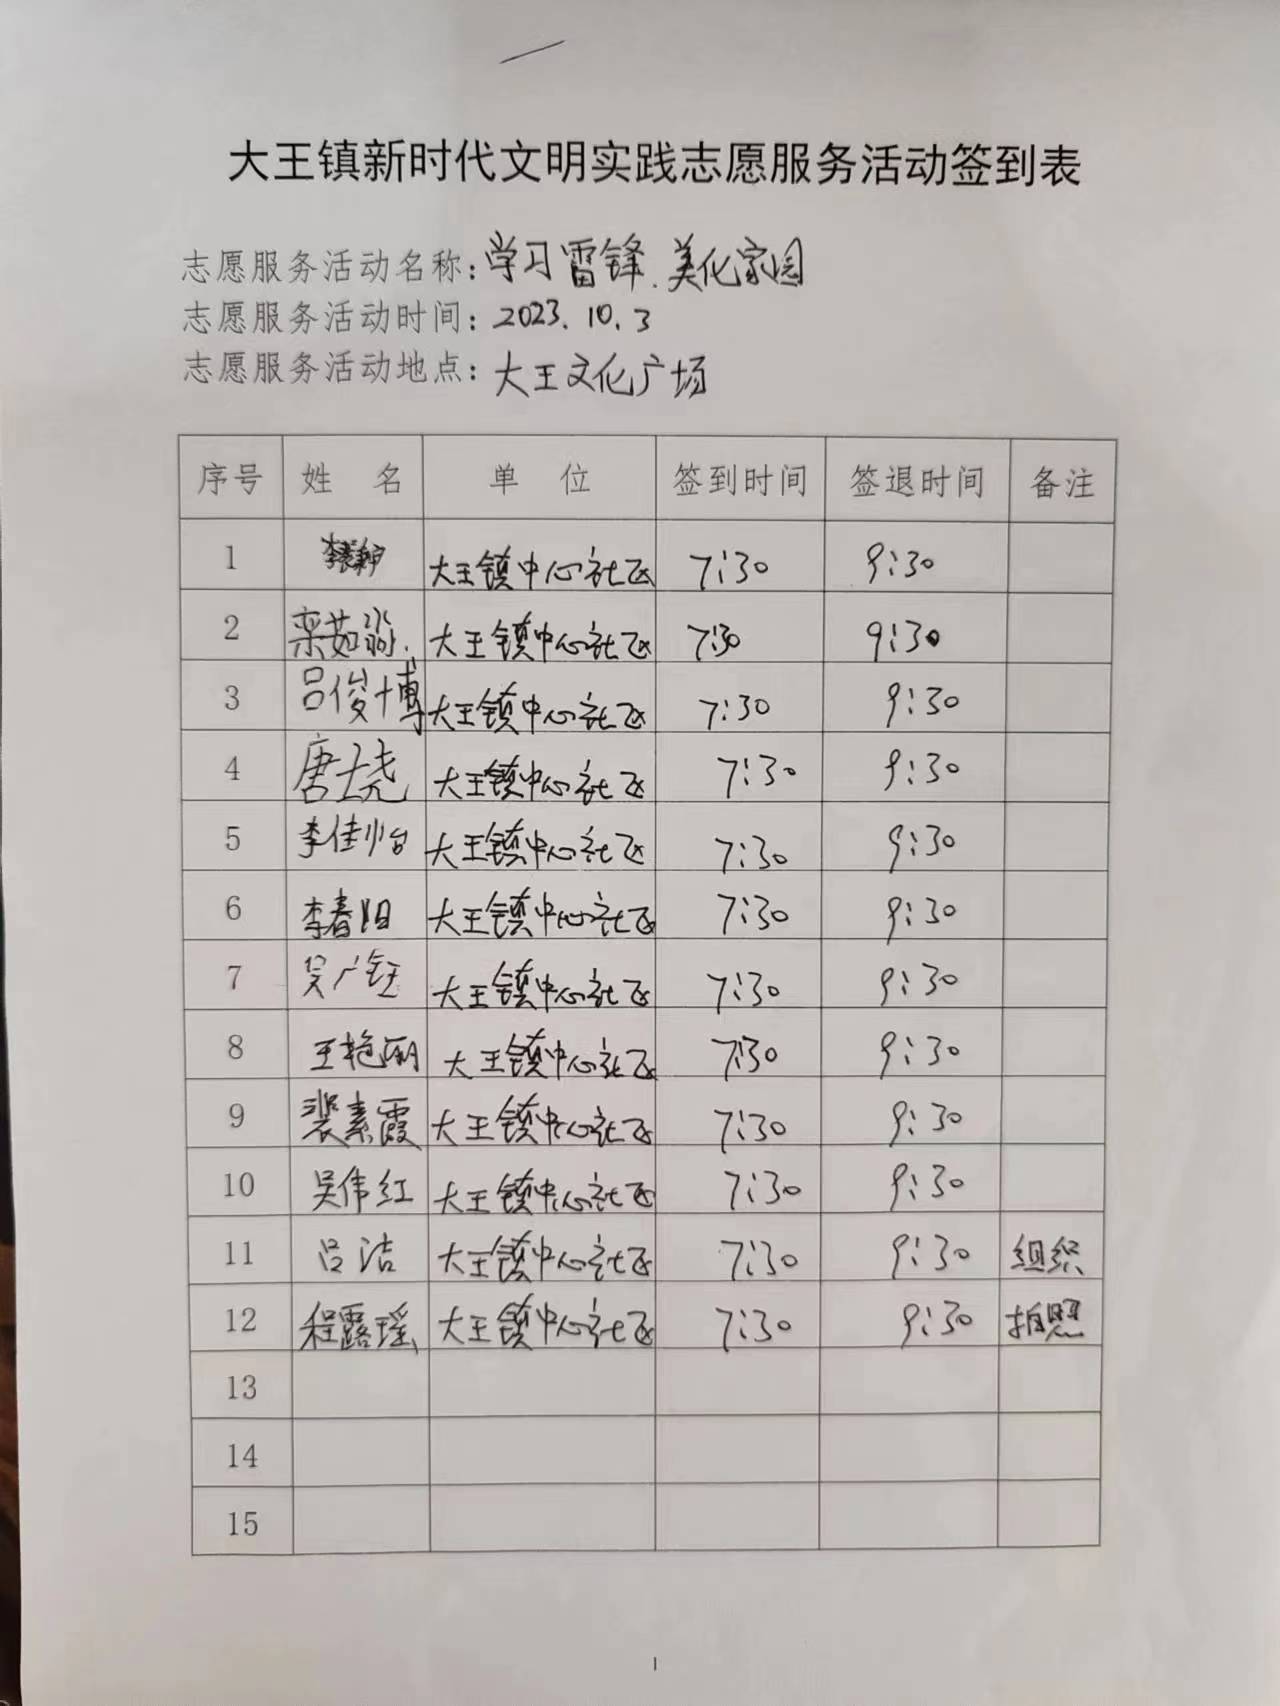 大王镇新时代文明实践志愿服务活动签到表
志愿服务活动名称：学习雷锋.美化家园
志愿服务活动时间：2023.10.3
志愿服务活动地点：大王文化广场
序号 姓名 单位 签到时间 签退时间 备注
1 大王镇中心社区 7:30 9:30
2 栾茹 大王镇中心社区 7:30 9:30
3 吕俊博 大王镇中心社区 7:30 9:30
4 唐士尧 大王镇中心社区 7:30 9:30
5 李佳怡 大王镇中心社区 7:30 9:30
6 李春阳 大王镇中心社区 7:30 9:30
7 吴广钰 大王镇中心社区 7:30 9:30
8 王艳丽 大王镇中心社区 7:30 9:30
9 裴素霞 大王镇中心社区 7:30 9:30
10 吴伟红 大王镇中心社区 7:30 9:30
11 吕洁 大王镇中心社区 7:30 9:30 组织
12 程露瑶 大王镇中心社区 7:30 9:30 拍照
13
14
15
1